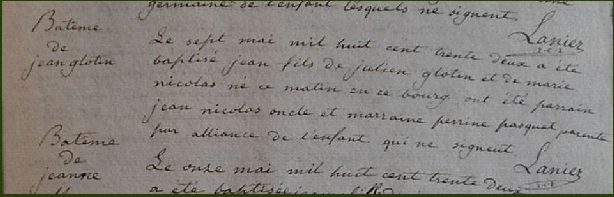 germaine de l'enfant lesquels ne signent.
Lanier
Bateme
de
jean glotin
Le sept mai mil huit cent trente deux a été
baptisé jean fils de julien glotin et de marie
nicolas né ce matin en ce bourg ont été parrain
jean nicolas oncle et marraine perrine pasquet parente
par alliance de l'enfant qui ne signent.
Lanier
Bateme
de
jeanne
Le onze mai mil huit cent trente deux
a été baptisée